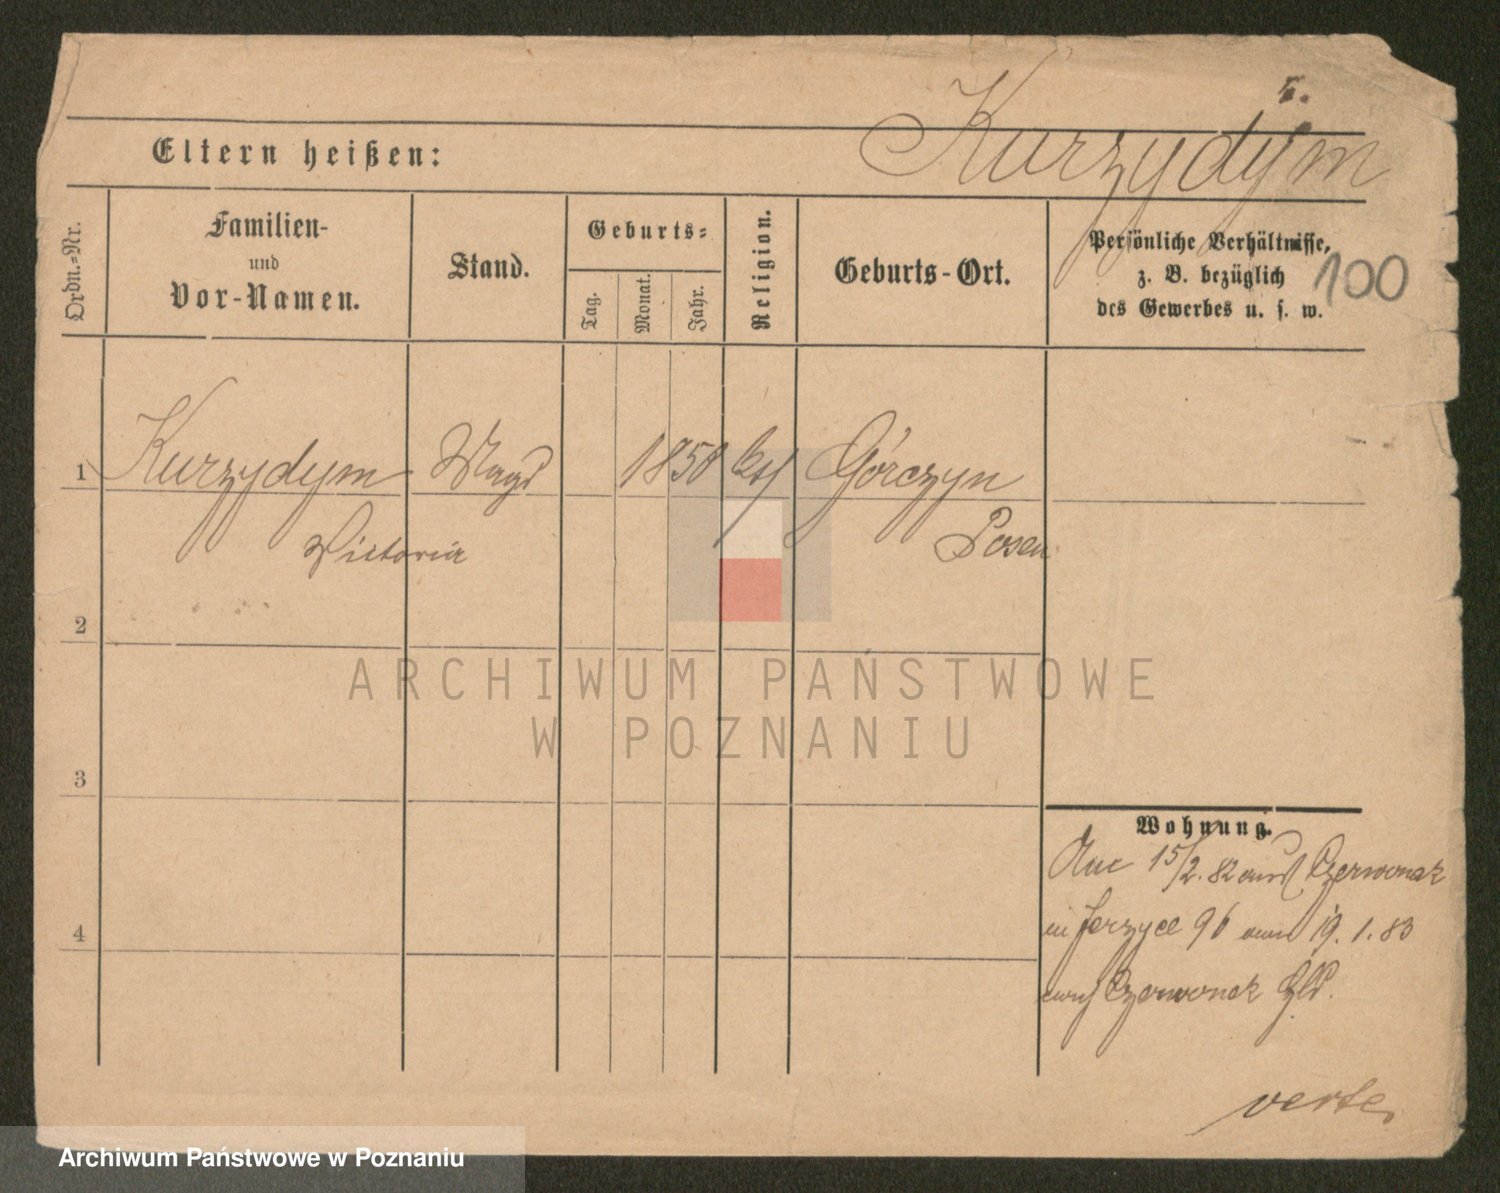 Kurzydym
Eltern heißen:
Ordn.=Nr.
Familien-
und
Vor-Namen.
Stand.
Geburts=
Tag.
Monat.
Jahr.
Religion.
Geburts-Ort.
Persönliche Verhältnisse,
z. B. bezüglich
des Gewerbes u. s. w.
100
1 Kurzydym Magd 1858 Górczyn
Victoria Posen
2
3
4
Wohnung.
15/2. 82 aus Czerwonak
in Jerzyce 96 19. 1. 83
Czerwonak
verte
ARCHIWUM PAŃSTWOWE
W POZNANIU
Archiwum Państwowe w Poznaniu